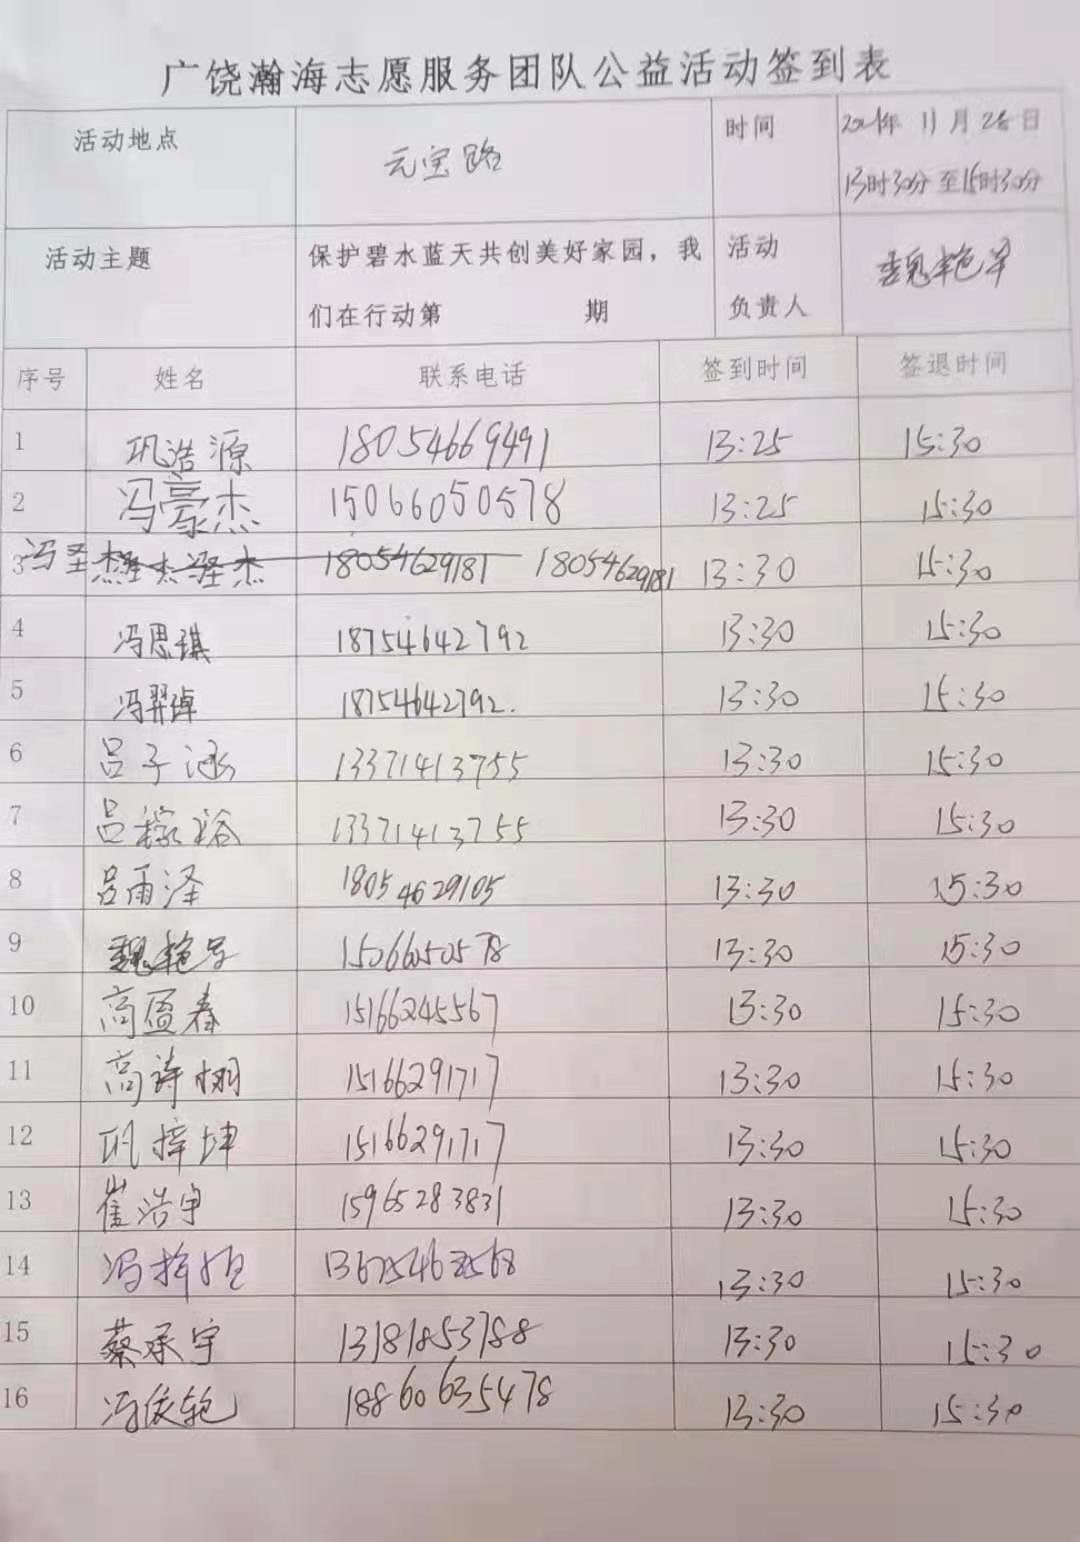 广饶瀚海志愿服务团队公益活动签到表
活动地点 元宝路 时间 2021年 11月 28日
13时30分 至15时30分
活动主题 保护碧水蓝天共创美好家园，我们在行动第 期 活动负责人 魏艳军
序号 姓名 联系电话 签到时间 签退时间
1 巩浩源 18054669491 13:25 15:30
2 冯豪杰 15066050578 13:25 15:30
3 冯圣杰 18054629181 18054629181 13:30 15:30
4 冯思琪 18754642792 13:30 15:30
5 冯羿焯 18754642792. 13:30 15:30
6 吕子涵 13371413755 13:30 15:30
7 吕稼裕 13371413755 13:30 15:30
8 吕雨泽 18054629105 13:30 15:30
9 魏艳军 15066050578 13:30 15:30
10 高盈春 15166245567 13:30 15:30
11 高诗栩 15166291717 13:30 15:30
12 巩梓坤 15166291717 13:30 15:30
13 崔浩宇 15965283831 13:30 15:30
14 冯梓恒 13:30 15:30
15 蔡承宇 13181853788 13:30 15:30
16 冯依轮 18860635478 13:30 15:30